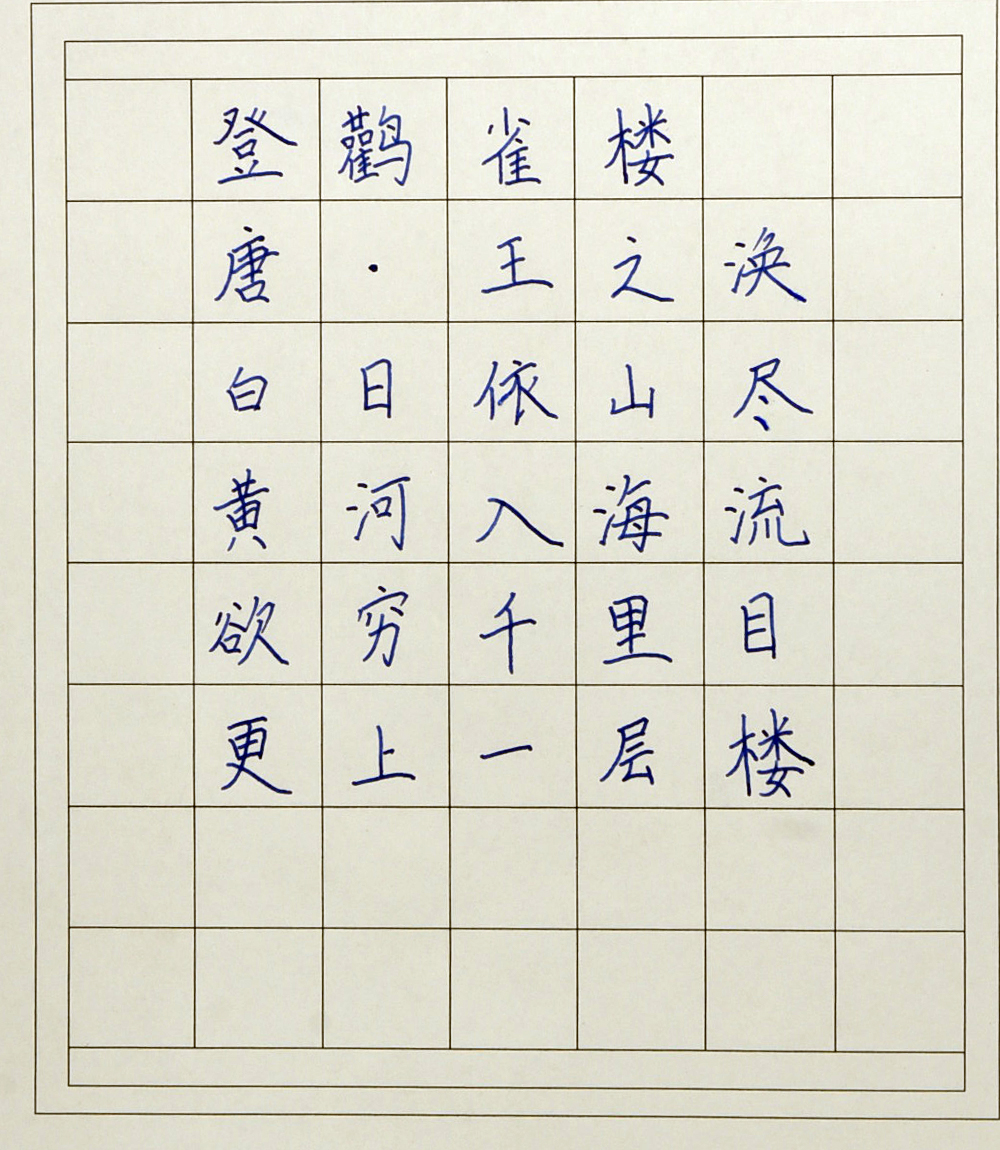 登鹳雀楼
唐·王之涣
白日依山尽
黄河入海流
欲穷千里目
更上一层楼